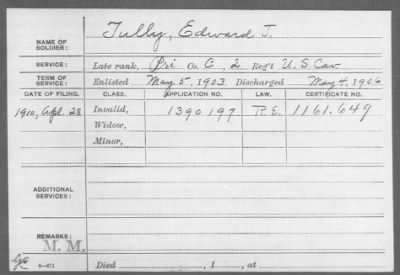 NAME OF SOLDIER: Tully, Edward J.
SERVICE: Late rank, Pri Co. C, 2 Reg't U.S. Cav.
TERM OF SERVICE: Enlisted May 5, 1903. Discharged May 4, 1906
DATE OF FILING. CLASS. APPLICATION NO. LAW. CERTIFICATE NO.
1910, Apl. 28 Invalid, 1390197 R.E. 1161.649
Widow,
Minor,
ADDITIONAL SERVICES:
REMARKS:
M. M.
Died , 1 , at